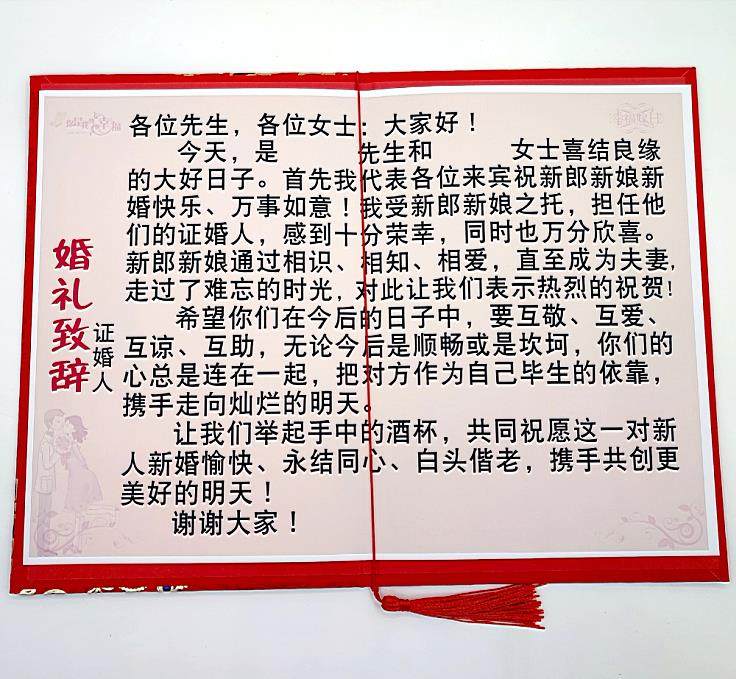 婚礼致辞
证婚人
各位先生，各位女士：大家好！
今天，是 先生和 女士喜结良缘
的大好日子。首先我代表各位来宾祝新郎新娘新
婚快乐、万事如意！我受新郎新娘之托，担任他
们的证婚人，感到十分荣幸，同时也万分欣喜。
新郎新娘通过相识、相知、相爱，直至成为夫妻，
走过了难忘的时光，对此让我们表示热烈的祝贺！
希望你们在今后的日子中，要互敬、互爱、
互谅、互助，无论今后是顺畅或是坎坷，你们的
心总是连在一起，把对方作为自己毕生的依靠，
携手走向灿烂的明天。
让我们举起手中的酒杯，共同祝愿这一对新
人新婚愉快、永结同心、白头偕老，携手共创更
美好的明天！
谢谢大家！